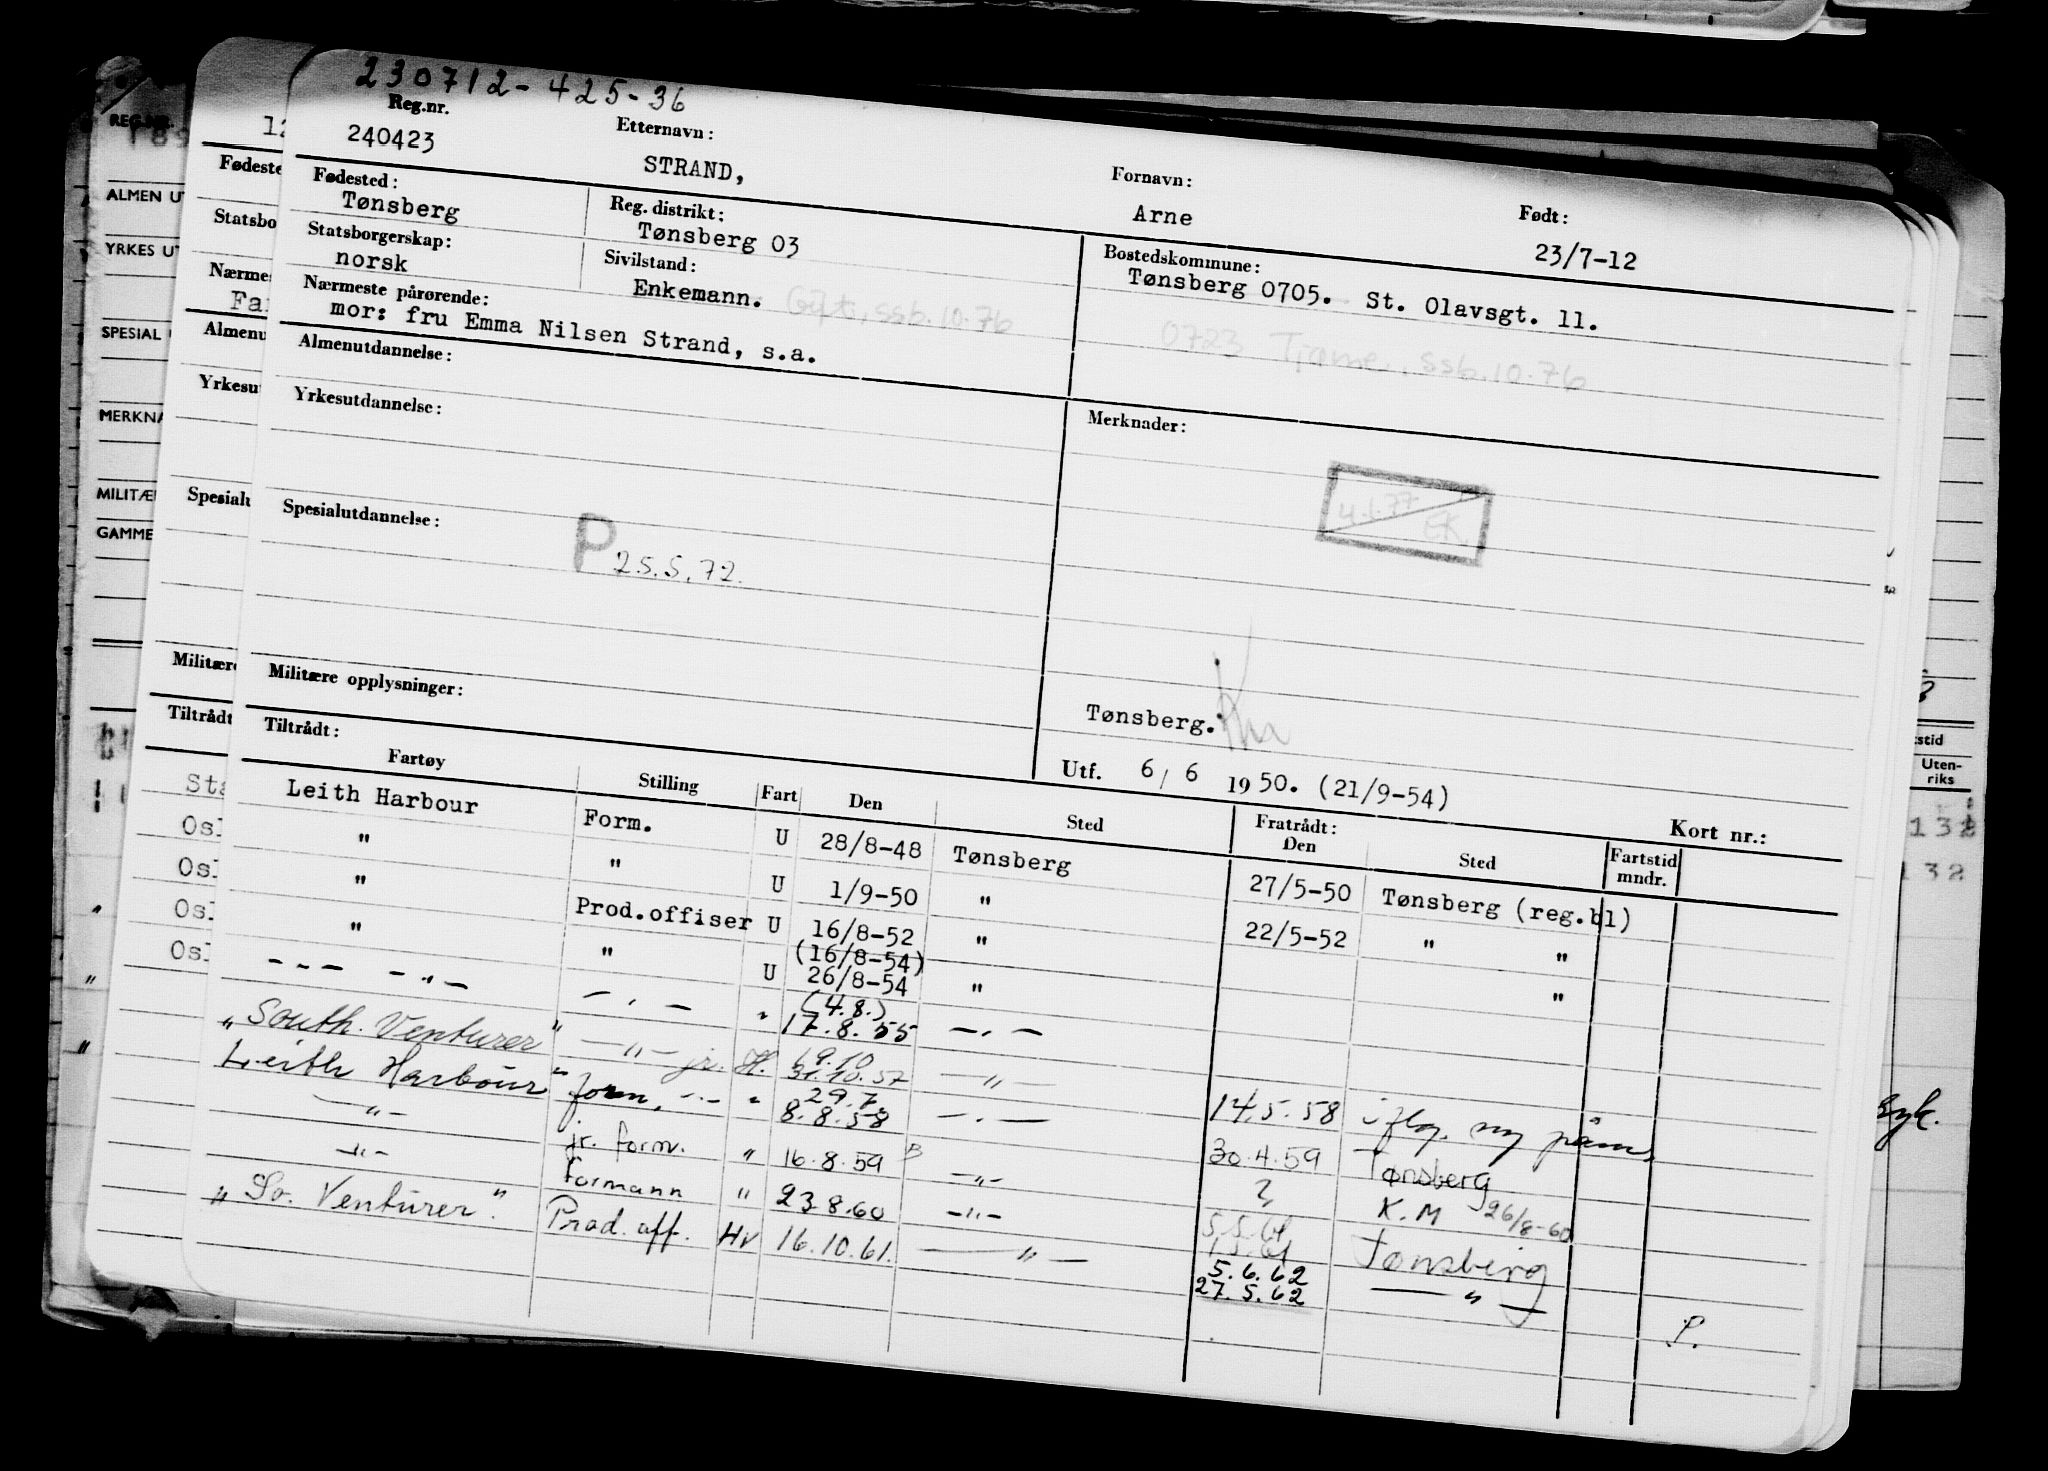 230712-425-36
Reg.nr.
240423
Etternavn:
STRAND,
Fornavn:
Arne
Født:
23/7-12
Fødested:
Tønsberg
Reg. distrikt:
Tønsberg 03
Bostedskommune:
Tønsberg 0705. St. Olavsgt. 11.
0723 Tjøme, ssb. 10.76
Statsborgerskap:
norsk
Sivilstand:
Enkemann. Gift, ssb. 10.76
Nærmeste pårørende:
mor: fru Emma Nilsen Strand, s.a.
Almenutdannelse:
Yrkesutdannelse:
Merknader:
4.1.77
EK
Spesialutdannelse:
P 25.5.72.
Militære opplysninger:
Tønsberg.
Utf. 6/6 1950. (21/9-54)
Kort nr.:
Tiltrådt:
Fartøy Stilling Fart Den Sted Fratrådt: Den Sted Fartstid mndr.
Leith Harbour Form. U 28/8-48 Tønsberg 27/5-50 Tønsberg (reg.bl)
" " U 1/9-50 " 22/5-52 " "
" Prod.offiser U 16/8-52 " "
(16/8-54)
" " U 26/8-54 "
(4.8.)
-"- -"- -"- " 17.8.55 -"-
"South. Venturer" -"- jr. H. 19.10 31.10.57 -"- 14.5.58
Leith Harbour" form. -"- " 29.7 8.8.58 -"- 30.4.59 Tønsberg
-"- jr. form. " 16.8.59 -"- K.M 26/8-60
-"- Formann " 23.8.60 -"- 5.5.61 1.5.61 Tønsberg
"So. Venturer". Prod. off. HV 16.10.61. -"- 5.6.62 27.5.62 -"-
P.
REG.NR.
ALMEN UT
YRKES UT
SPESIAL
MERKNA
MILITÆ
GAMME
12
Fødeste
Statsbo
Nærmes
Fa
Almenu
Yrkesut
Spesialu
Militære
Tiltrådt
Sta
Osl
Osl
Osl
Osl
stid
Uten-
riks
132
132
syk.